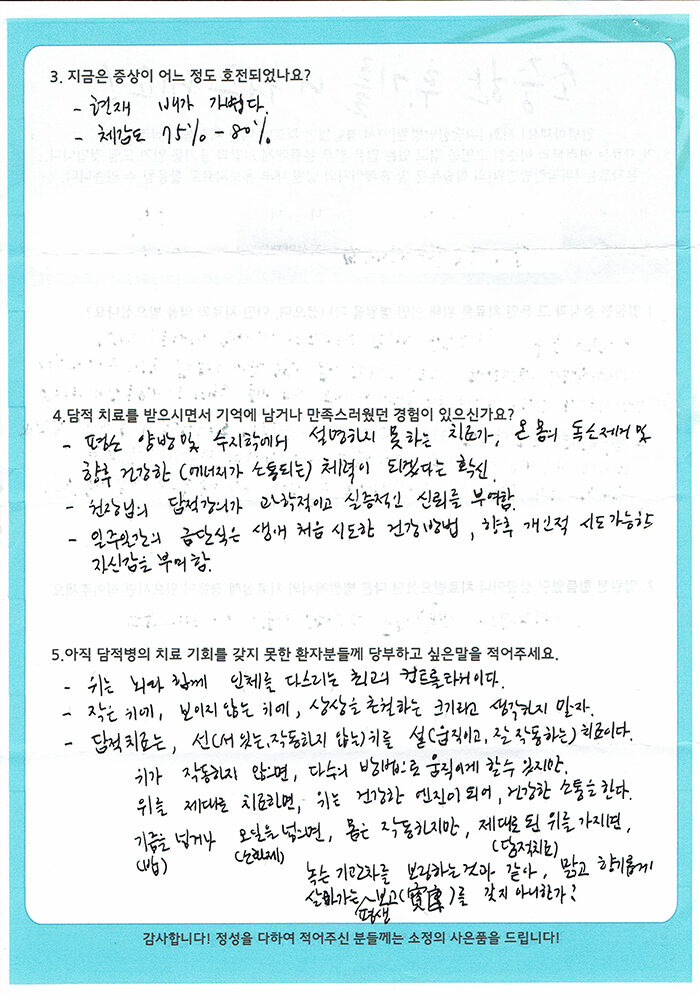 3. 지금은 증상이 어느 정도 호전되었나요?
- 현재 배가 가볍다.
- 체감도 75% - 80%
4.담적 치료를 받으시면서 기억에 남거나 만족스러웠던 경험이 있으신가요?
- 평소 양방 및 수지학에서 설명하지 못하는 치료가, 온 몸의 독소제거 및
향후 건강한 (에너지가 소통되는) 체력이 되겠다는 확신.
- 원장님의 담적강의가 과학적이고 실증적인 신뢰를 부여함.
- 일주일간의 금단식은 생애 처음 시도한 건강방법, 향후 개인적 시도가능한
자신감을 부여함.
5.아직 담적병의 치료 기회를 갖지 못한 환자분들께 당부하고 싶은말을 적어주세요.
- 위는 뇌와 함께 인체를 다스리는 최고의 컨트롤타워이다.
- 작은 위에, 보이지 않는 위에, 상상을 초월하는 크기라고 생각하지 말자.
- 담적치료는, 선(서 있는,작동하지 않는)위를 설(움직이고, 잘 작동하는) 치료이다.
위가 작동하지 않으면, 다수의 방법으로 움직이게 할수 있지만.
위를 제대로 치료하면, 위는 건강한 엔진이 되어, 건강한 소통을 한다.
기름을 넣거나 오일을 넣으면, 몸은 작동하지만, 제대로 된 위를 가지면,
(밥) (소화제) (담적치료)
녹슨 기관차를 보링하는것과 같아, 맑고 향기롭게
살아가는 평생 보고(寶庫)를 갖지 아니한가?
감사합니다! 정성을 다하여 적어주신 분들께는 소정의 사은품을 드립니다!